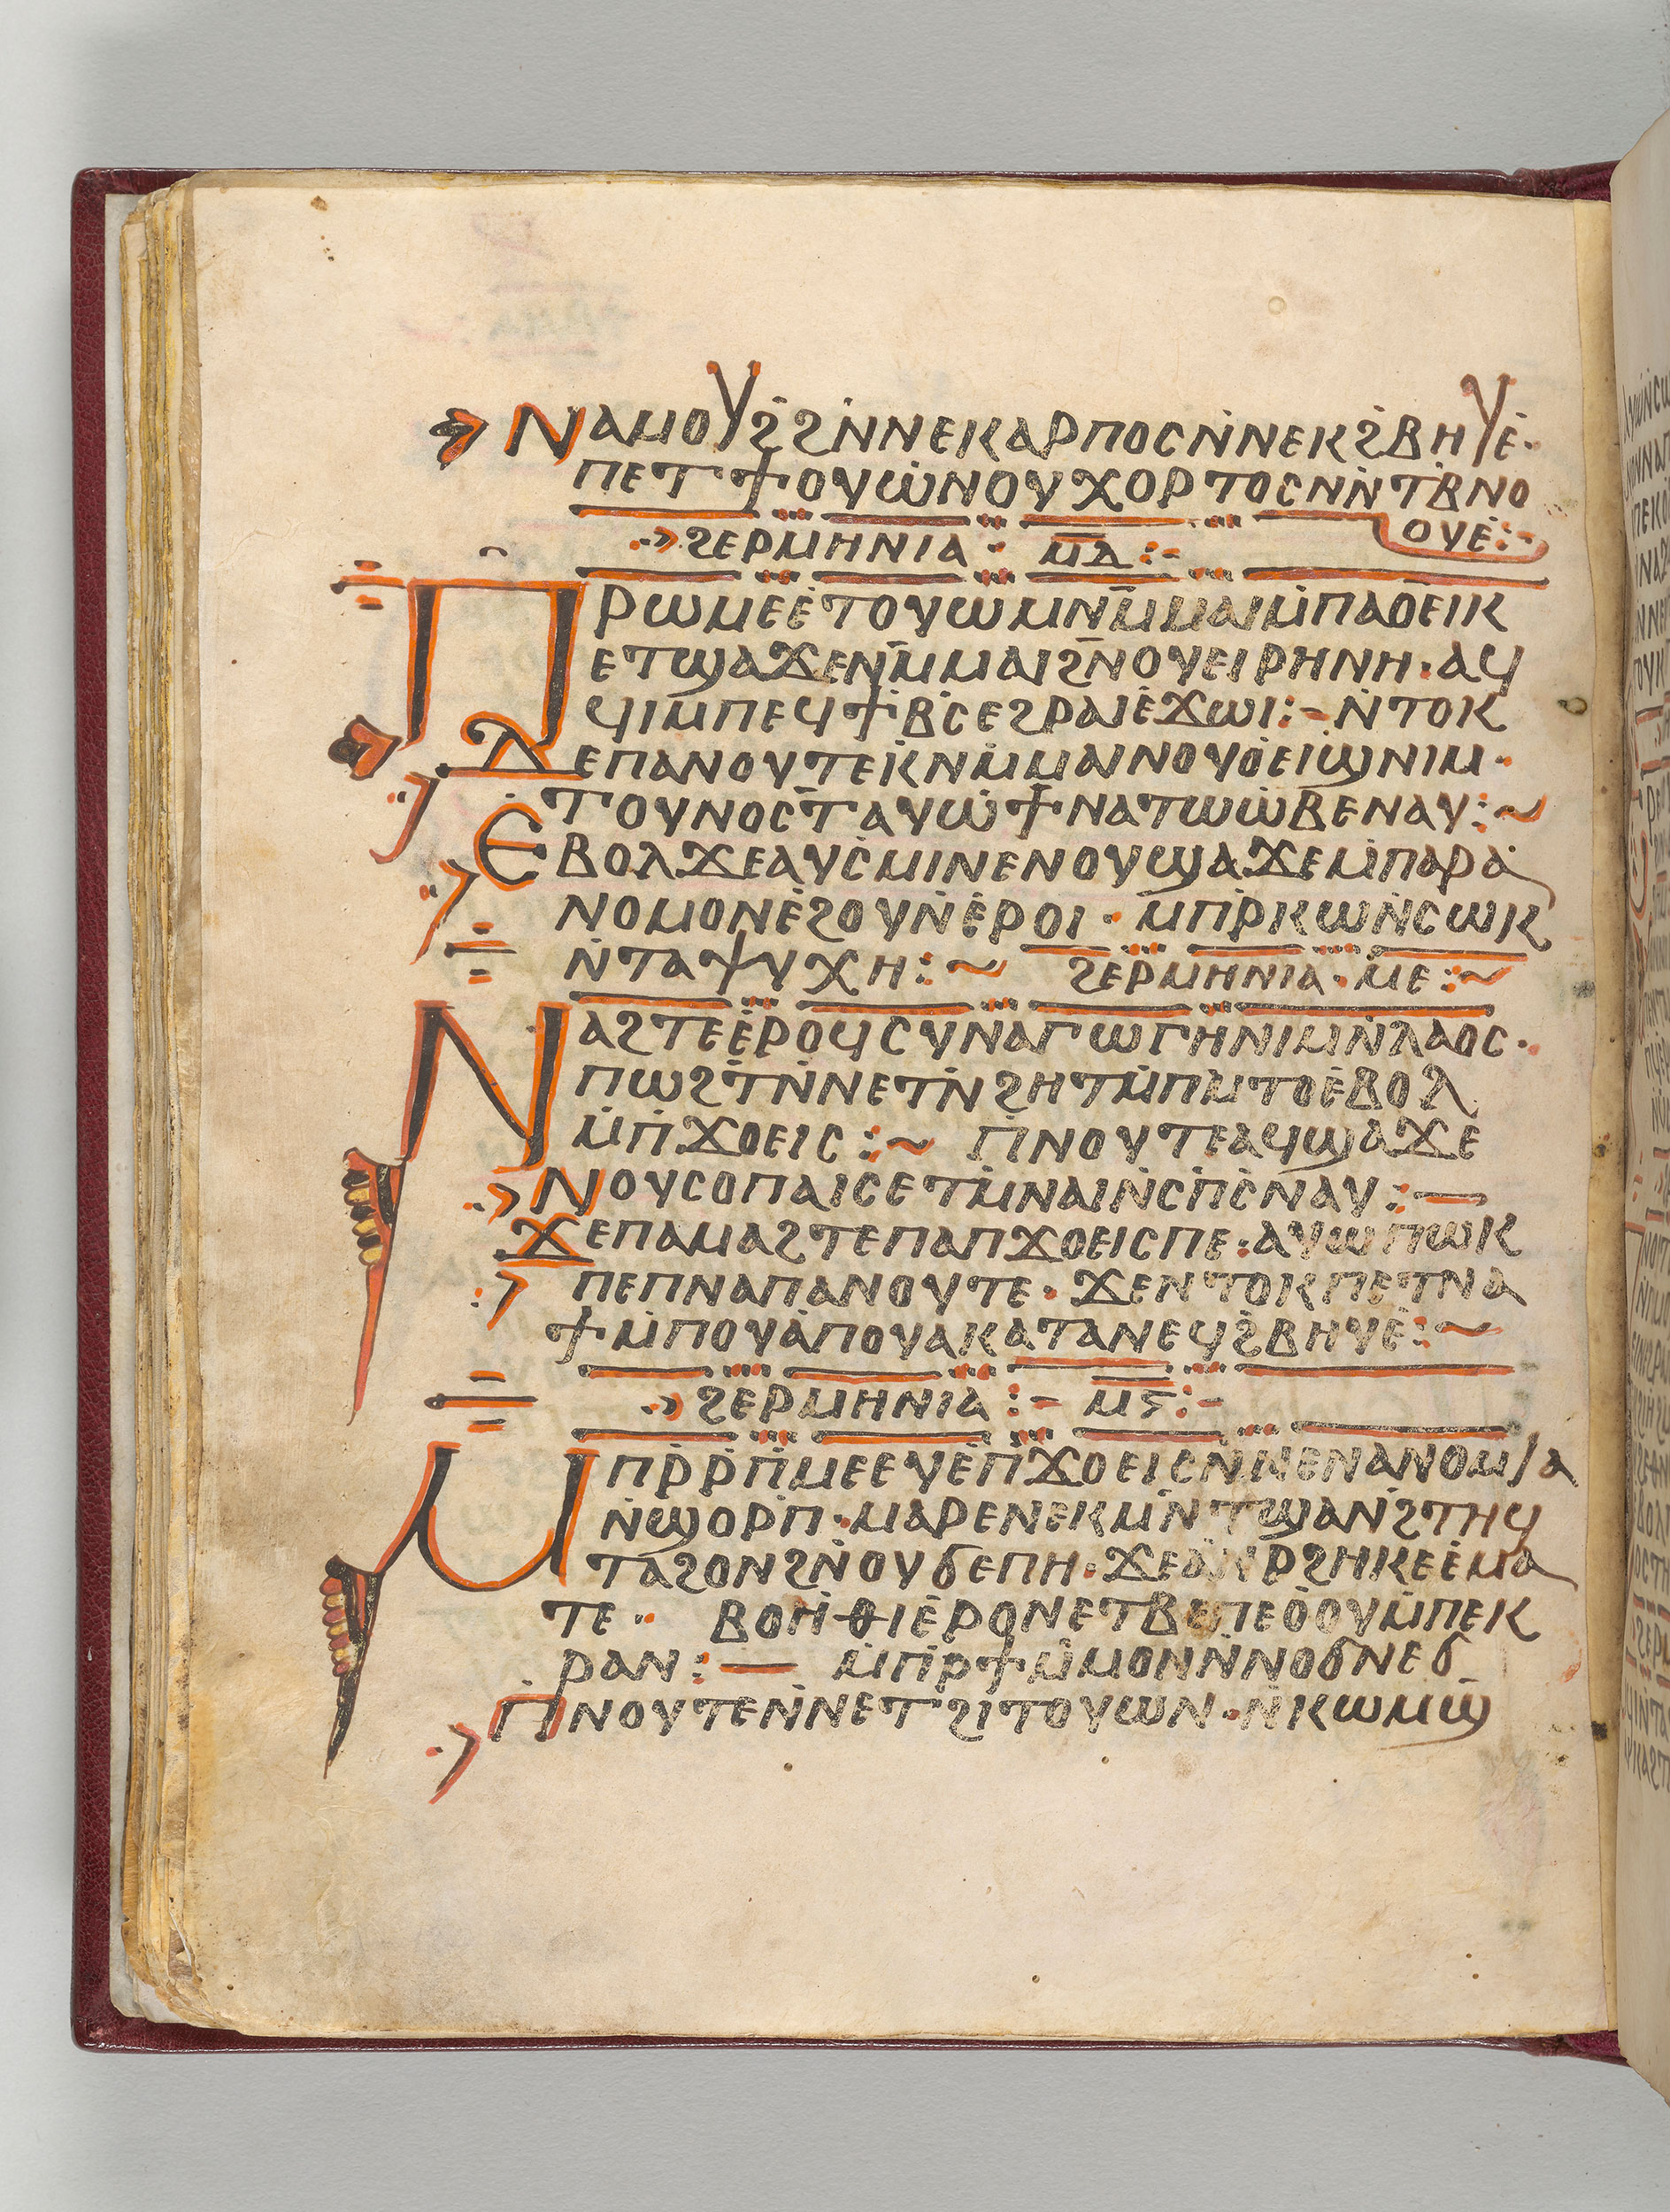 ⲛⲁⲙⲟⲩϩϩⲛ̇ⲛⲉⲕⲁⲣⲡⲟⲥⲛ̇ⲛⲉⲕϩⲃⲏⲩⲉ̇·
ⲡⲉⲧϯⲟⲩⲱ̇ⲛⲟⲩⲭⲟⲣⲧⲟⲥⲛⲛ̇ⲧⲃ̇ⲛⲟ
ⲟⲩⲉ̇:-
ϩⲉⲣⲙⲏⲛⲓⲁ· ⲙ̅ⲇ̅:-
ⲡⲣⲱⲙⲉⲉ̇ⲧⲟⲩⲱⲙⲛⲙ̅ⲙⲁⲓⲙ̇ⲡⲁⲟ̅ⲉⲓⲕ
ⲉⲧϣⲁϫⲉⲛⲙ̅ⲙⲁⲓϩⲛ̅ⲟⲩⲉⲓⲣⲏⲛⲏ·ⲁϥ
ϥⲓⲙⲡⲉϥϯⲃ̇ⲥⲉϩⲣⲁⲓⲉ̇ϫⲱⲓ:- ⲛ̇ⲧⲟⲕ
ⲇⲉⲡⲁⲛⲟⲩⲧⲉⲕ̇ⲛⲙ̇ⲙⲁⲓⲛⲟⲩⲟ̇ⲉⲓϣⲛⲓⲙ·
ⲧⲟⲩⲛⲟⲥⲧ̅ⲁⲩⲱ̇ϯⲛⲁⲧⲱⲱ̇ⲃⲉⲛⲁⲩ:~
ⲉⲃⲟⲗϫⲉⲁⲩⲥ̇ⲙⲓⲛⲉⲛⲟⲩϣⲁϫⲉⲙ̇ⲡⲁⲣⲁ̇
ⲛⲟⲙⲟⲛⲉ̇ϩⲟⲩⲛ̇ⲉ̇ⲣⲟⲓ· ⲙ̇ⲡⲣ̇ⲕⲱⲛ̇ⲥⲱⲕ
ⲛ̇ⲧⲁⲯⲩⲭⲏ:~ ϩⲉⲣⲙⲏⲛⲓⲁ·ⲙ̅ⲉ̅:~
ⲛⲁϩⲧⲉⲉ̇ⲣⲟϥⲥⲩⲛⲁⲅⲱⲅⲏⲛⲓⲙⲛ̇ⲗⲁⲟⲥ·
ⲡⲱϩⲧ̇ⲛ̇ⲛⲉⲧⲛ̇ϩⲏⲧⲙ̇ⲡⲙ̇ⲧⲟⲉ̇ⲃⲟⲗ
ⲙ̇ⲡ̇ϫⲟⲉⲓⲥ:~ ⲡ̇ⲛⲟⲩⲧⲉⲁϥϣⲁϫⲉ
ⲛⲟⲩⲥⲟⲡⲁⲓⲥⲉⲧⲙ̇ⲛⲁⲓⲛ̇ⲥⲡ̇ⲥ̇ⲛⲁⲩ:—
ϫⲉⲡⲁⲙⲁϩⲧⲉⲡⲁⲡϫⲟⲉⲓⲥⲡⲉ·ⲁⲩⲱⲡⲱⲕ
ⲡⲉⲡⲛⲁⲡⲁⲛⲟⲩⲧⲉ· ϫⲉⲛⲧⲟⲕⲡⲉⲧⲛⲁ
ϯⲙ̇ⲡⲟⲩⲁ̇ⲡⲟⲩⲁⲕⲁⲧⲁⲛⲉϥϩ̇ⲃⲏⲩⲉ̇:~
ϩⲉⲣⲙⲏⲛⲓⲁ:- ⲙ̅ⲋ̅:-
ⲙⲡⲣ̇ⲣ̇ⲡ̇ⲙⲉⲉⲩⲉ̇ⲡ̇ϫⲟⲉⲓⲥⲛ̇ⲛⲉⲛⲁⲛⲟⲙⲓⲁ
ⲛ̇ϣⲟⲣⲡ̇·ⲙⲁⲣⲉⲛⲉⲕⲙⲛ̅ⲧϣⲁⲛϩ̇ⲧⲏϥ
ⲧⲁϩⲟⲛϩⲛ̇ⲟⲩϭⲉⲡⲏ·ϫⲉⲁⲛⲣϩⲏⲕⲉⲉ̇ⲙⲁ
ⲧⲉ· ⲃⲟⲏ̇ⲑⲓⲉ̇ⲣⲟⲛⲉⲧⲃⲉⲡⲉⲟ̇ⲟⲩⲙ̇ⲡⲉⲕ
ⲣⲁⲛ:— ⲙ̇ⲡⲣ̇ϯⲙ̇ⲙⲟⲛⲛ̇ⲛⲟϭⲛⲉϭ
ⲡ̇ⲛⲟⲩⲧⲉⲛ̇ⲛⲉⲧϩⲓⲧⲟⲩⲱⲛ·ⲛ̇ⲕⲱⲙϣ̇